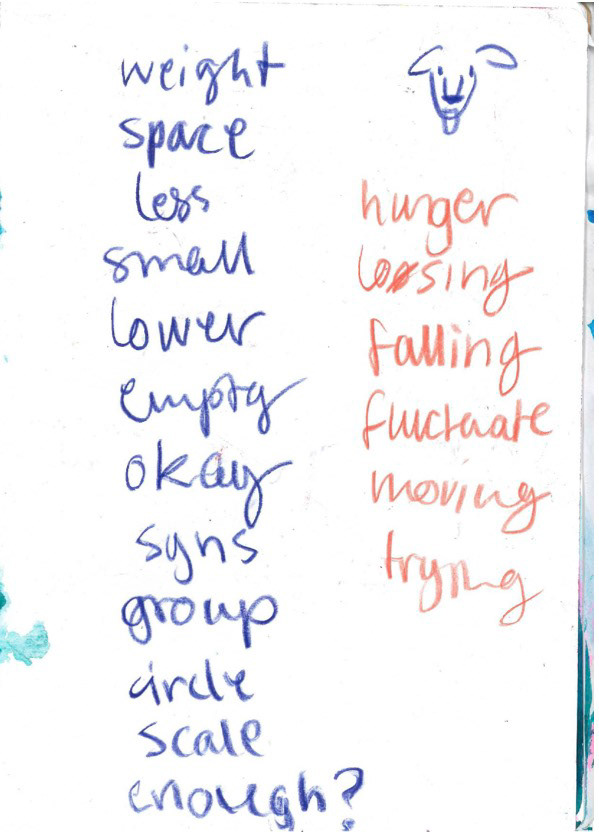 weight
space
less
small
lower
empty
okay
syns
group
circle
scale
enough?
hunger
loosing
falling
fluctuate
moving
trying